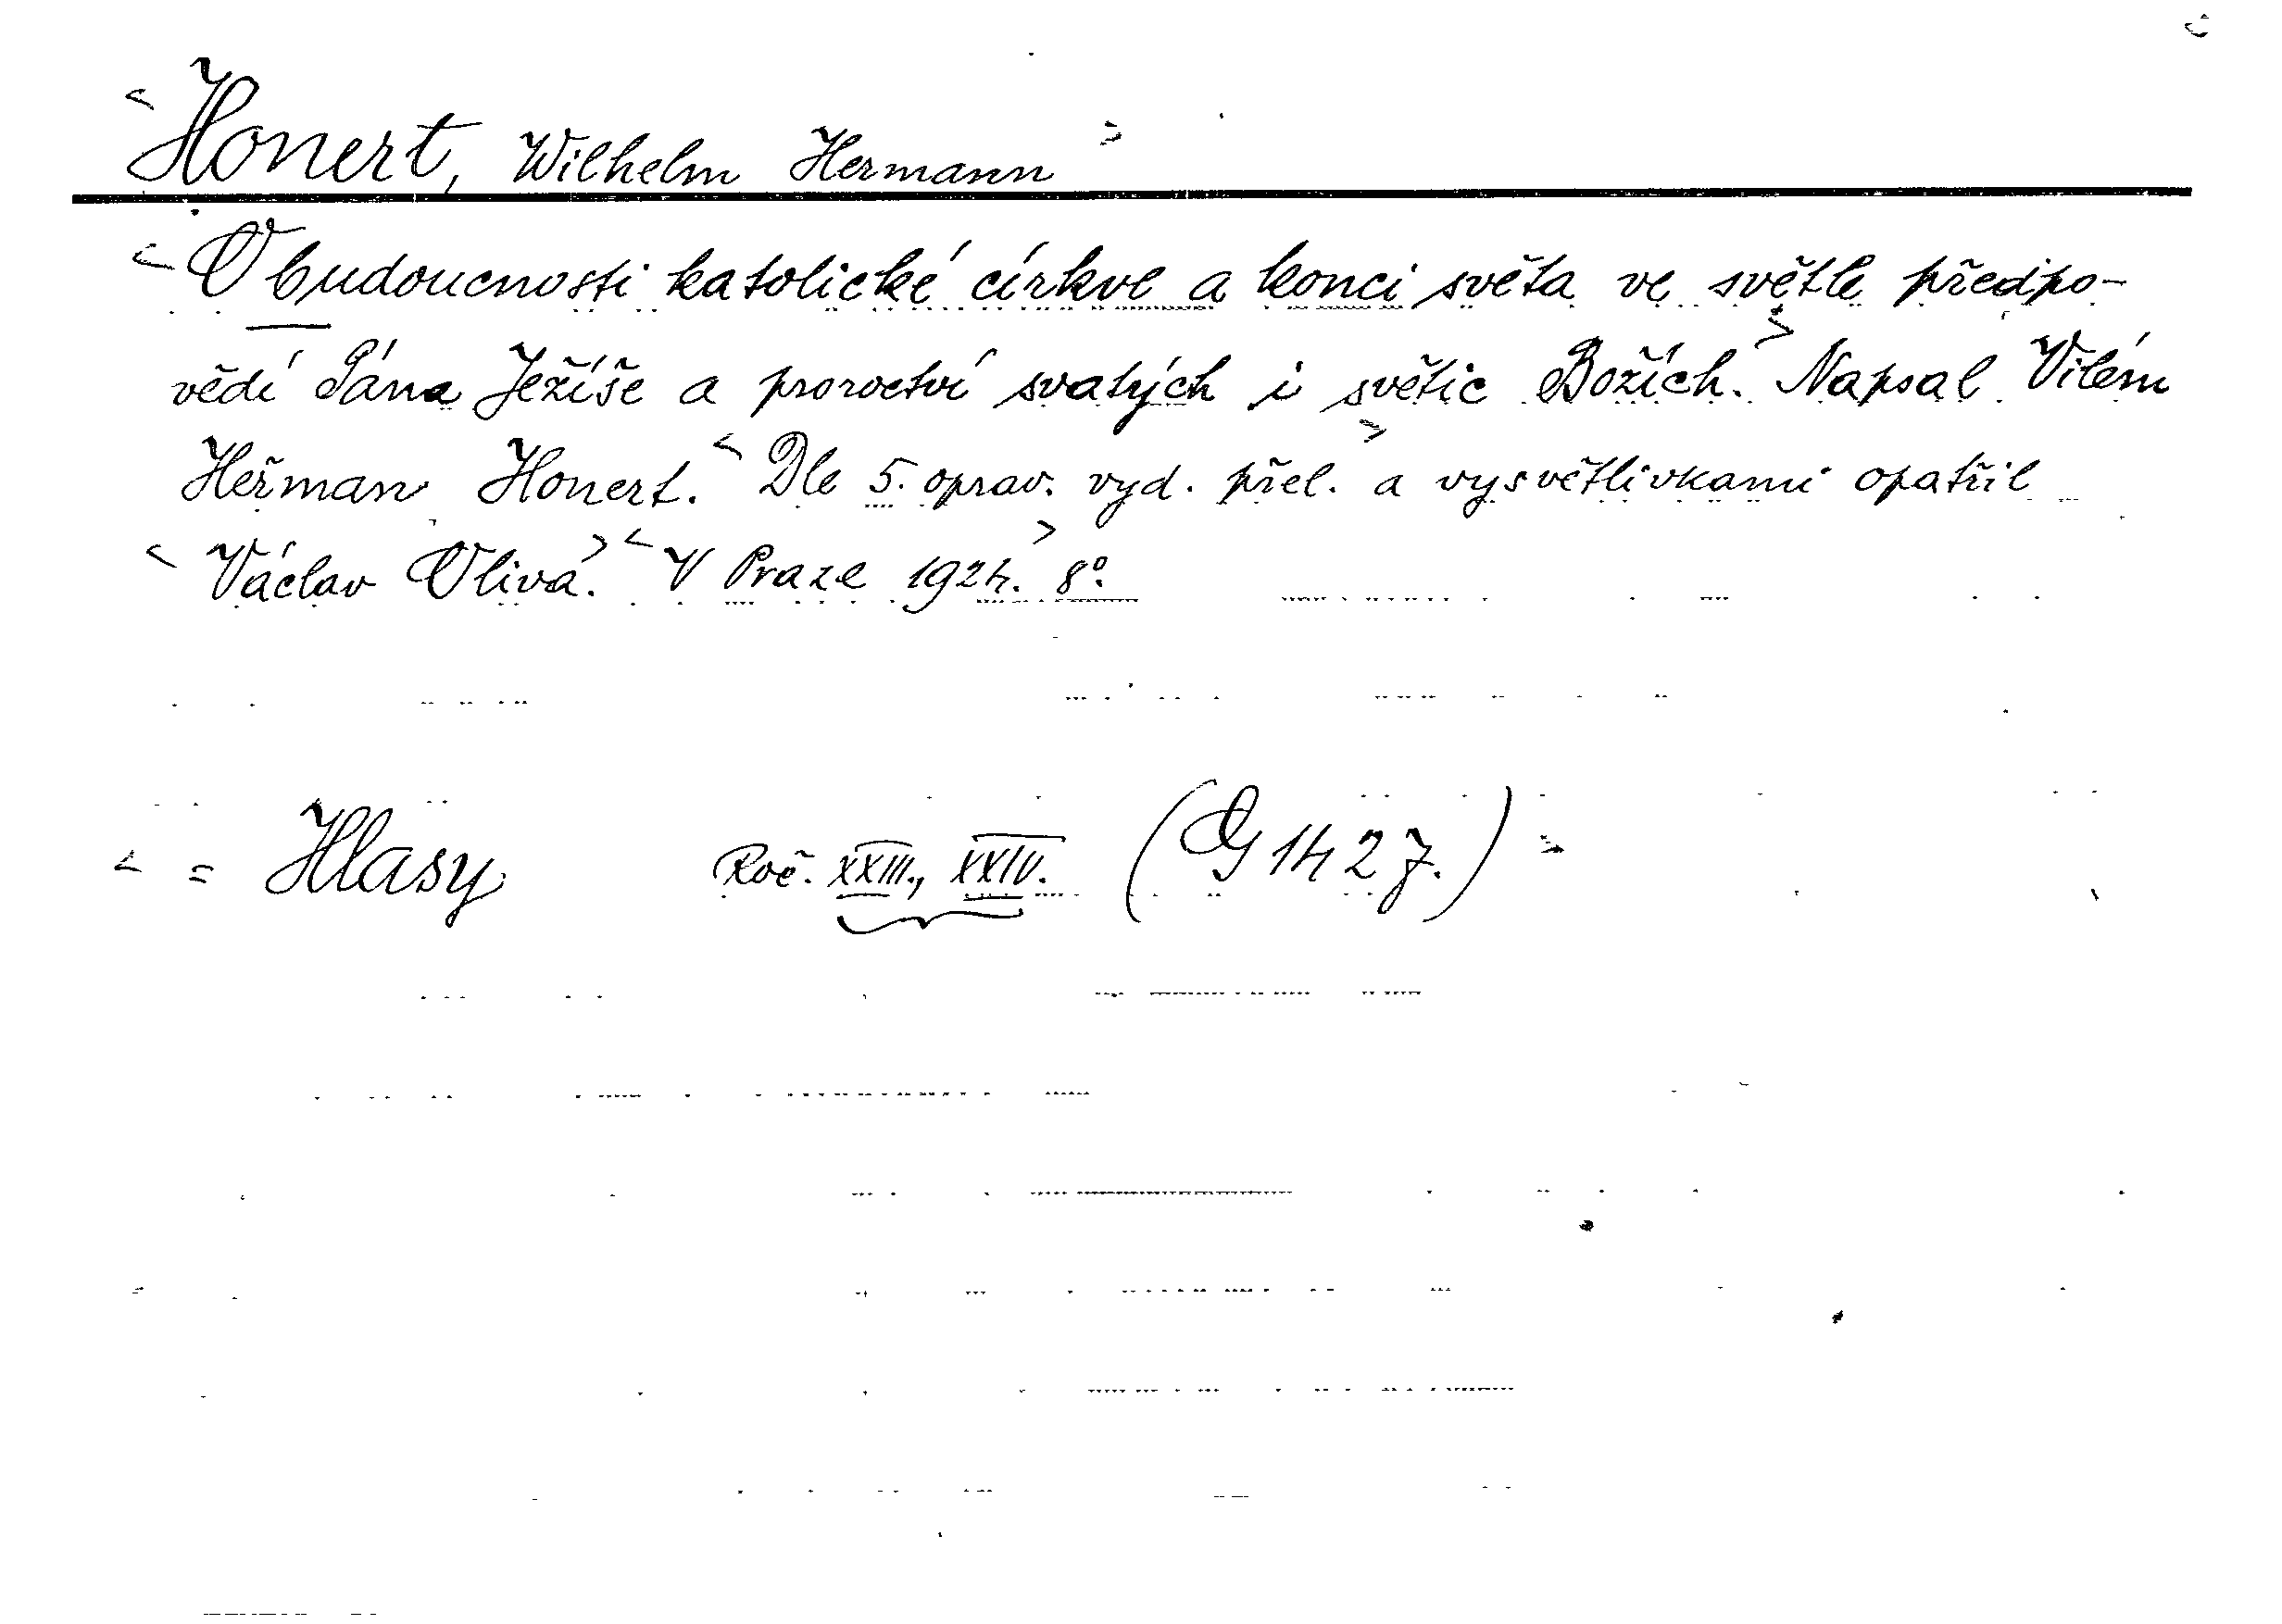 <Honert, Wilhelm Hermann>
<O budoucnosti katolické církve a konci světa ve světle předpo-
vědí Pána Ježíše a proroctví svatých i světic Božích.> Napsal Vilém
Heřman Honert. <Dle 5. oprav. vyd. přel.> a vysvětlivkami opatřil
<Václav Oliva.> <V Praze 1924.> 8°.
< = Hlasy Roč. XXIII., XXIV. (G 1427.) >